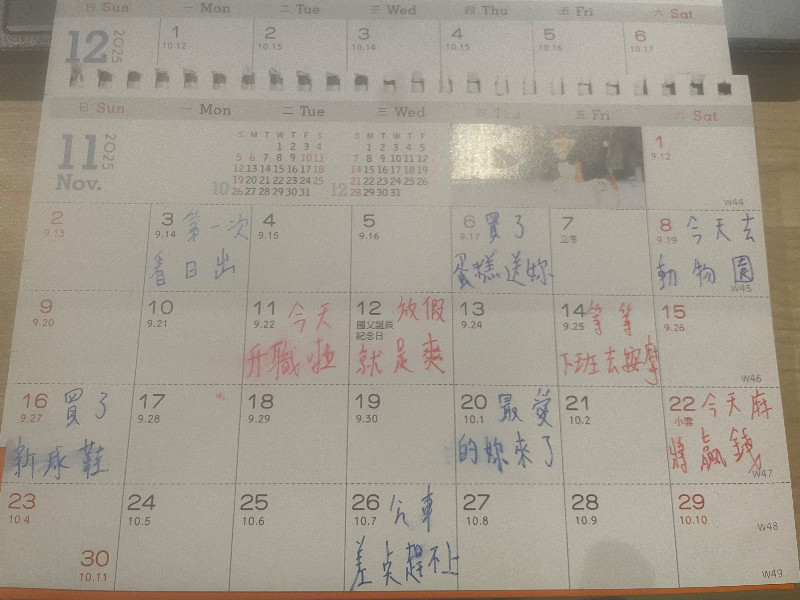 日 Sun 一 Mon 二 Tue 三 Wed 四 Thu 五 Fri 六 Sat
12 2025 1 2 3 4 5 6
10.12 10.13 10.14 10.15 10.16 10.17
日 Sun 一 Mon 二 Tue 三 Wed 四 Thu 五 Fri 六 Sat
11 2025
Nov.
S M T W T F S
1 2 3 4
5 6 7 8 9 10 11
12 13 14 15 16 17 18
19 20 21 22 23 24 25
10 26 27 28 29 30 31
S M T W T F
1 2 3 4 5
7 8 9 10 11 12
14 15 16 17 18 19
21 22 23 24 25 26
12 28 29 30 31
1
9.12
W44
2
9.13
3 第一次
9.14
看日出
4
9.15
5
9.16
6 買了
9.17
蛋糕送妳
7
立冬
8 今天去
9.19
動物園
W45
9
9.20
10
9.21
11 今天
9.22
升職啦
12 放假
國父誕辰
紀念日
就是爽
13
9.24
14 等等
9.25
下班去按摩
15
9.26
W46
16 買了
9.27
新球鞋
17
9.28
18
9.29
19
9.30
20 最愛
10.1
的妳來了
21
10.2
22 今天麻
小雪
將贏錢
W47
23
10.4
24
10.5
25
10.6
26 公車
10.7
差点趕不上
27
10.8
28
10.9
29
10.10
W48
30
10.11
W49